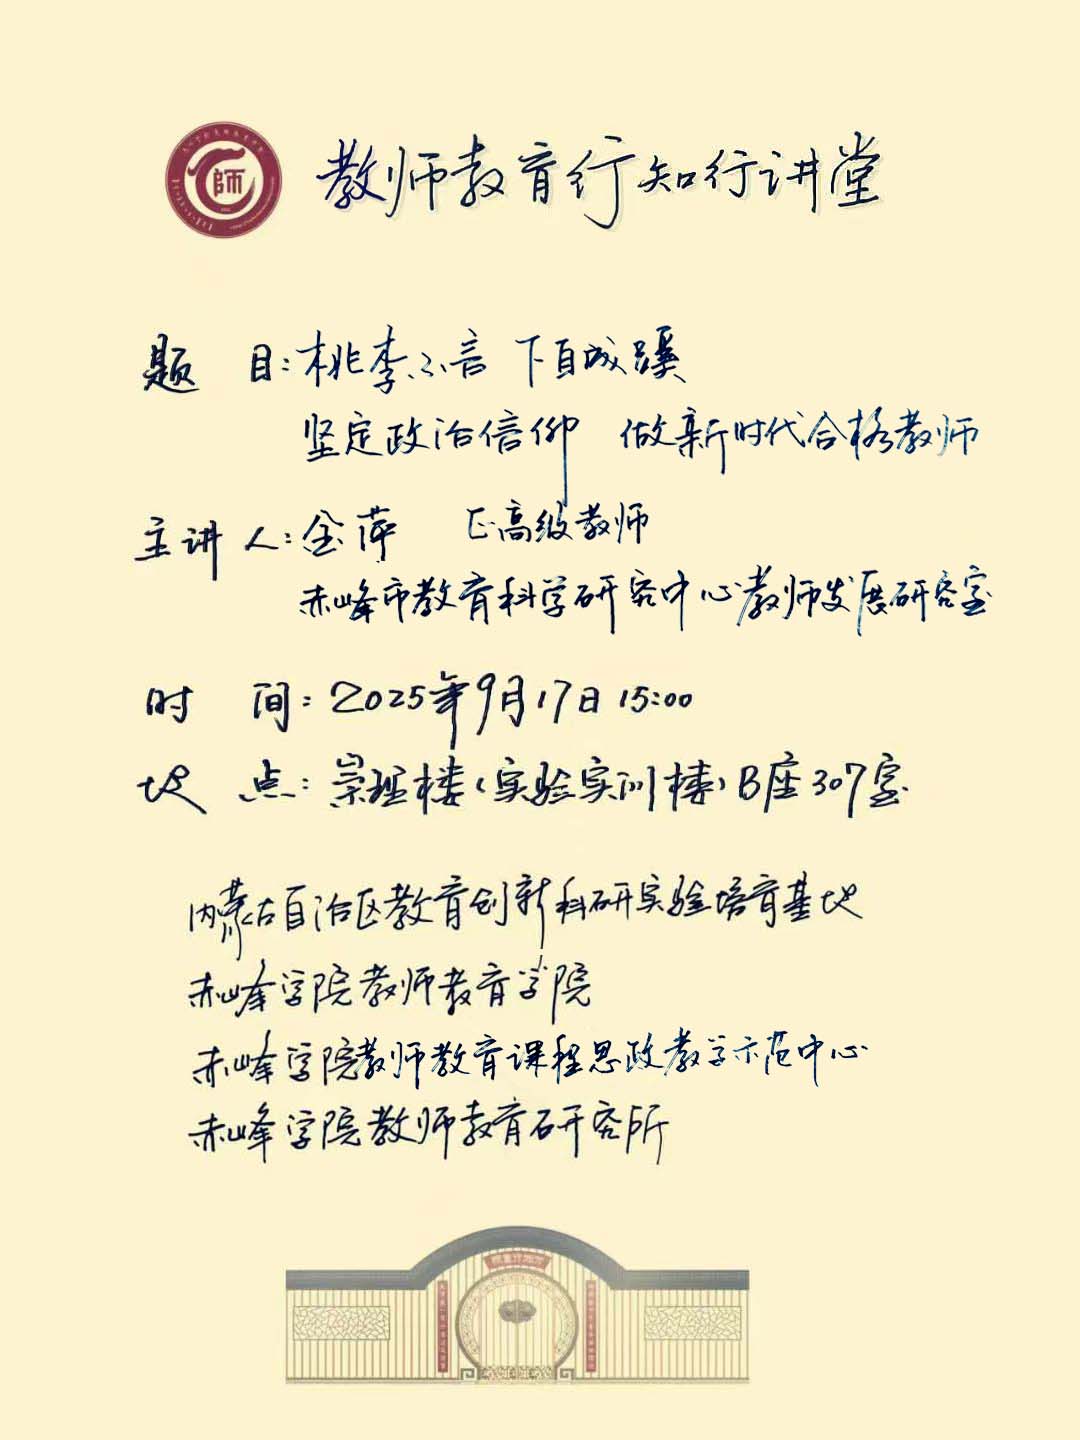 師
教师教育行知行讲堂
题 目：桃李不言 下自成蹊
坚定政治信仰 做新时代合格教师
主讲人：金萍 正高级教师
赤峰市教育科学研究中心教师发展研究室
时 间：2025年9月17日 15:00
地 点：崇理楼（实验实训楼）B座307室
内蒙古自治区教育创新科研实验培育基地
赤峰学院教师教育学院
赤峰学院教师教育课程思政教学示范中心
赤峰学院教师教育研究所